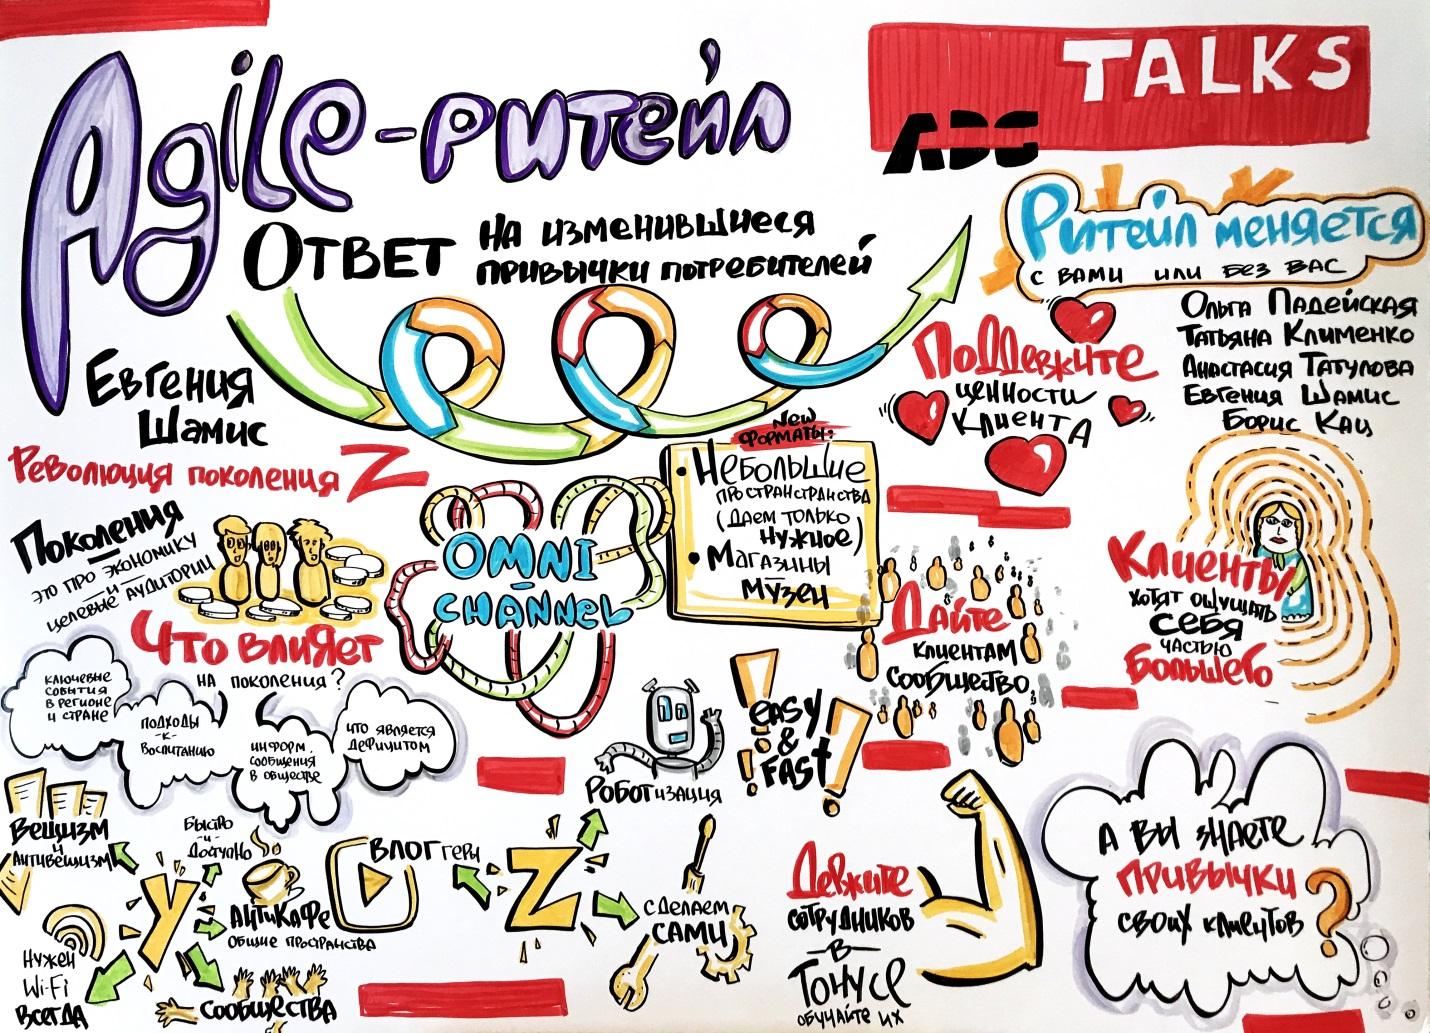 Agile-ритейл
TALKS
ADG
Ответ
на изменившиеся
привычки потребителей
Ритейл меняется
с вами или без вас
Ольга Падейская
Татьяна Клименко
Анастасия Татулова
Евгения Шамис
Борис Кац
Поддержите
ценности
клиента
Евгения
Шамис
Революция поколения Z
Поколения
это про экономику
и
целевые аудитории
Что влияет
на поколения?
ключевые
события
в регионе
и стране
подходы
-к-
воспитанию
информ.
сообщения
в обществе
что является
дефицитом
OMNI
-
CHANNEL
New
форматы:
• Небольшие
пространстранства
(даем только
нужное)
• Магазины
музеи
Дайте
клиентам
сообщество
Клиенты
хотят ощущать
себя
частью
большего
easy
&
fast
Роботизация
Вещизм
и
антивещизм
Быстро
-и-
доступно
Y
Антикафе
общие пространства
Нужен
Wi-Fi
всегда
сообщества
влоггеры
Z
сделаем
сами
Держите
сотрудников
-в-
тонусе
обучайте их
А вы знаете
привычки
своих клиентов
?